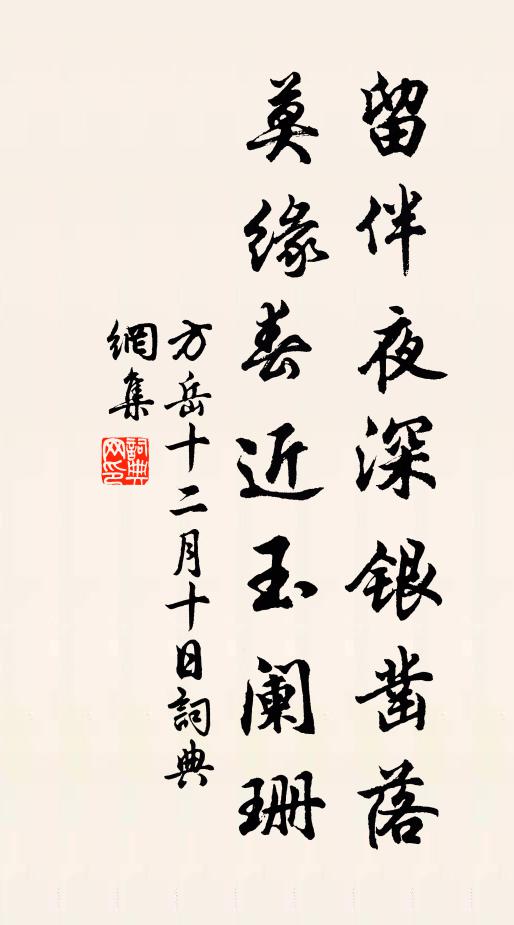 留伴夜深銀鑿落
莫缘春近玉阑珊
方岳十二月十日詞典
網集
詞典網印